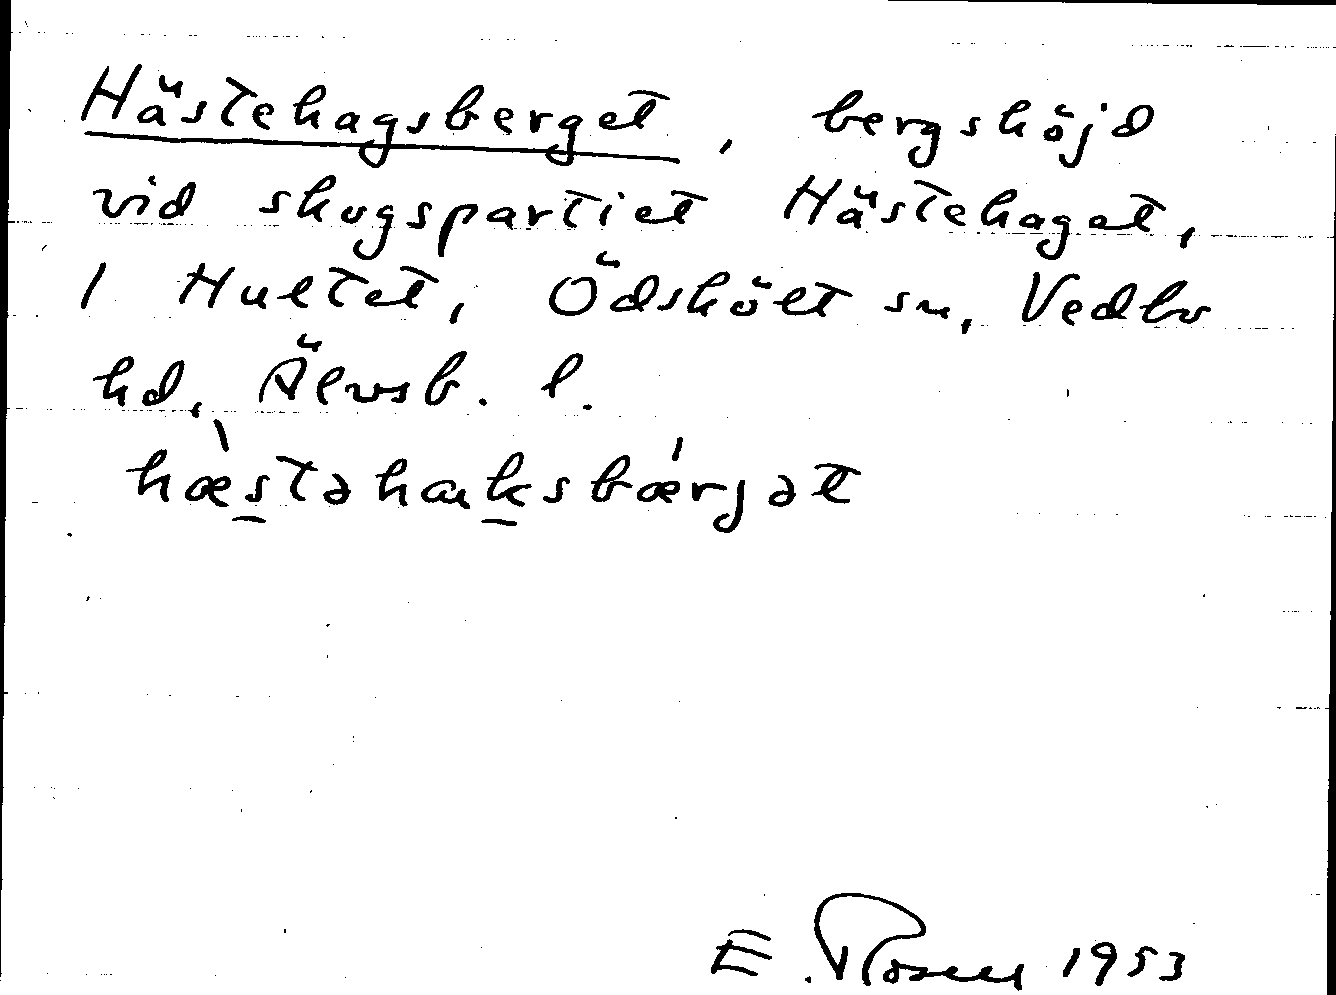 Hästehagsberget, bergshöjd
vid skogspartiet Hästehaget,
1 Hultet, Ödskölt sn, Vedbo
hd, Älvsb. l.
hæ̀stəhaksbǽrjət
E. Rosen 1953